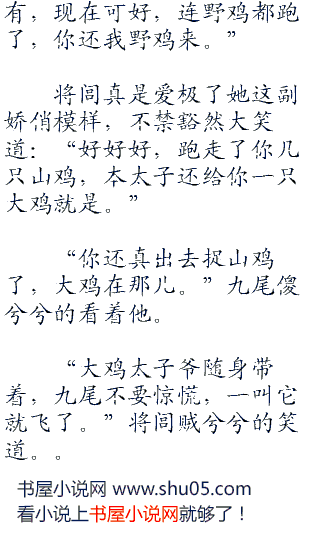 有，现在可好，连野鸡都跑
了，你还我野鸡来。”
将闾真是爱极了她这副
娇俏模样，不禁豁然大笑
道：“好好好，跑走了你几
只山鸡，本太子还给你一只
大鸡就是。”
“你还真出去捉山鸡
了，大鸡在那儿。”九尾傻
兮兮的看着他。
“大鸡太子爷随身带
着，九尾不要惊慌，一叫它
就飞了。”将闾贼兮兮的笑
道。。
书屋小说网 www.shu05.com
看小说上书屋小说网就够了！